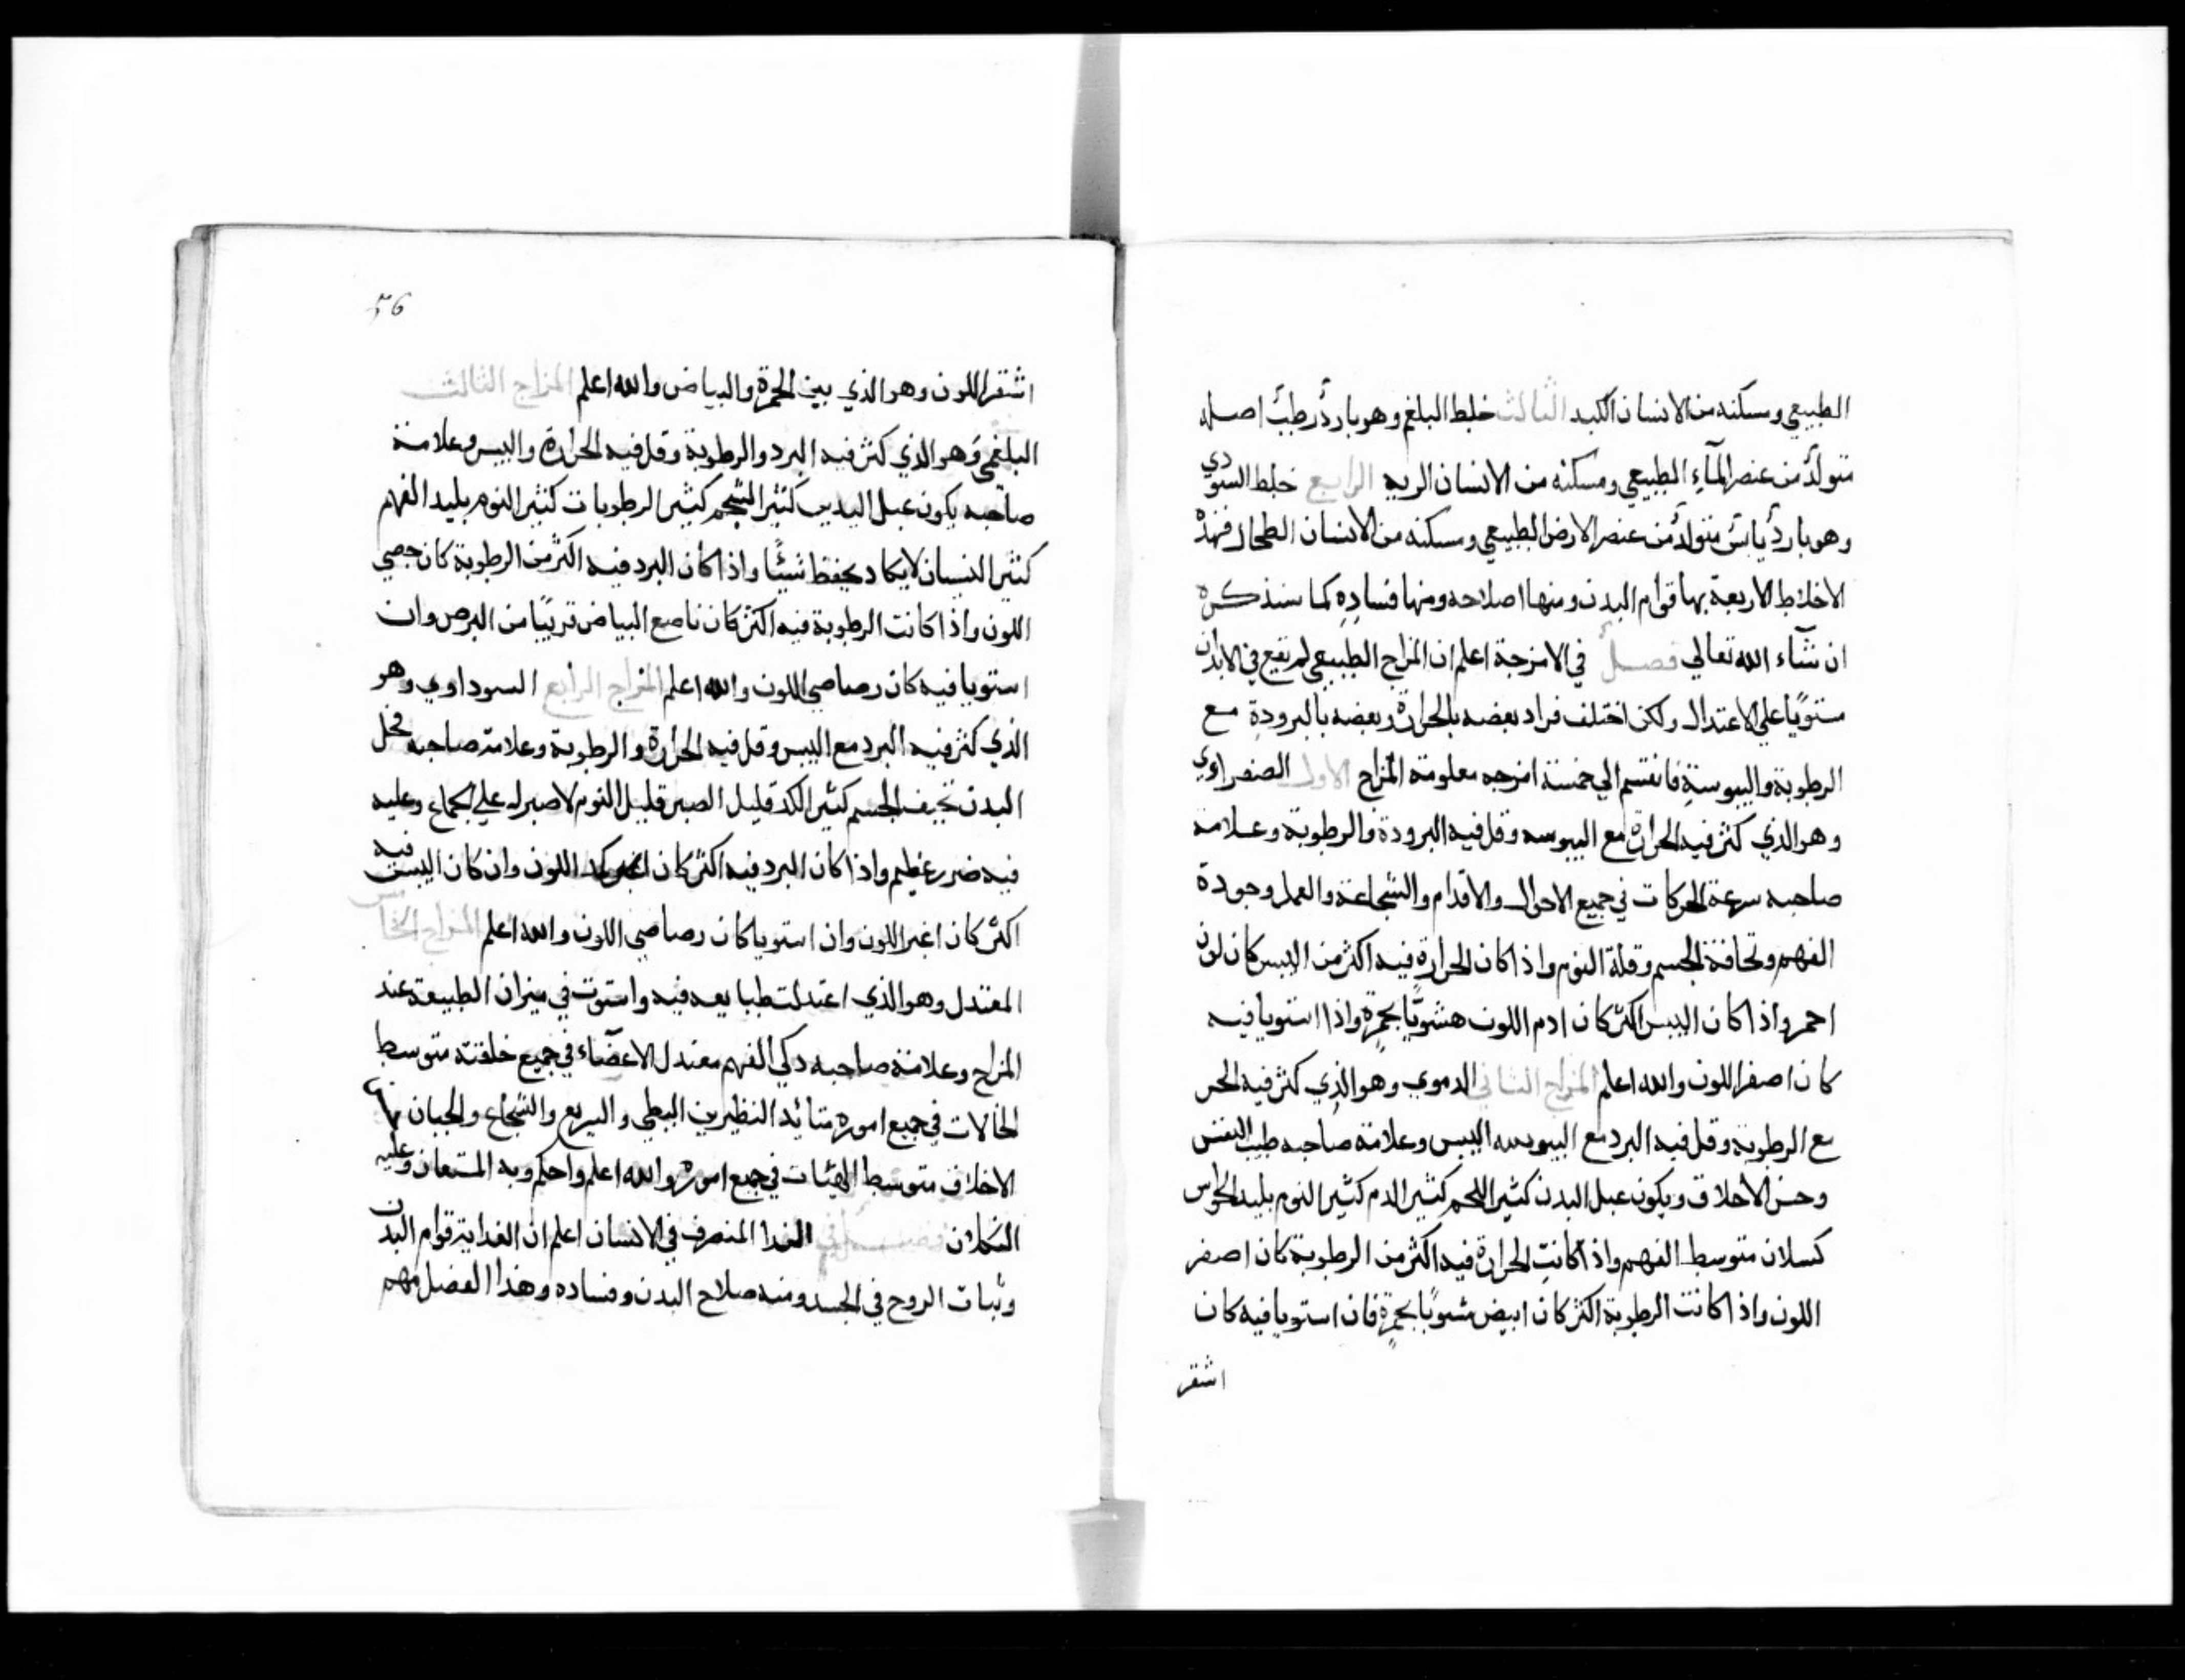 الطبيعي ومسكنه من الانسان الكبد الثالث خلط البلغم وهو بارد رطب اصله
متولد من عنصر المآء الطبيعي ومسكنه من الانسان الريه الرابع خلط السودي
وهو بارد يابس متولد من عنصر الارض الطبيعي ومسكنه من الانسان الطحال فهذه
الاخلاط الاربعة بها قوام البدن ومنها اصلاحه ومنها فساده كما سنذكره
ان شآء الله تعالي فصل في الامزجة اعلم ان المزاج الطبيعي لم يقع في الابدان
مستويا علي الاعتدال ولكن اختلف فزاد بعضه بالحرارة وبعضه بالبرودة مع
الرطوبة واليبوسة فانقسم الي خمسة امزجه معلومة المزاج الاول الصفراوي
وهو الذي كثر فيه الحرارة مع اليبوسه وقل فيه البرودة والرطوبة وعلامة
صاحبه سرعة الحركات في جميع الاحوال والاقدام والشجاعة والعمل وجودة
الفهم ونحافة الجسم وقلة النوم واذا كان الحرارة فيه اكثر من اليبس كان لون
احمر واذا كان اليبس اكثر كان ادم اللون مشوبا بحمرة واذا استويا فيه
كان اصفر اللون والله اعلم المزاج الثاني الدموي وهو الذي كثر فيه الحر
مع الرطوبة وقل فيه البرد مع اليبوسه اليبس وعلامة صاحبه طيب النفس
وحسن الاخلاق ويكون عبل البدن كثير اللحم كثير الدم كثير النوم بليد الحواس
كسلان متوسط الفهم واذا كانت الحرارة فيه اكثر من الرطوبة كان اصفر
اللون واذا كانت الرطوبة اكثر كان ابيض مشوبا بحمرة فان استويا فيه كان
اشقر
56
اشقر اللون وهو الذي بين الحمرة والبياض والله اعلم المزاج الثالث
البلغمي وهو الذي كثر فيه البرد والرطوبة وقل فيه الحرارة واليبس وعلامة
صاحبه يكون عبل اليدين كثير الشحم كثير الرطوبات كثير النوم بليد الفهم
كثير النسيان لايكاد يحفظ شيئا واذا كان البرد فيه اكثر من الرطوبة كان جصي
اللون واذا كانت الرطوبة فيه اكثر كان ناصع البياض قريبا من البرص وان
استويا فيه كان رصاصي اللون والله اعلم المزاج الرابع السوداوي وهو
الذي كثر فيه البرد مع اليبس وقل فيه الحرارة والرطوبة وعلامة صاحبه نحل
البدن نحيف الجسم كثير الكد قليل الصبر قليل النوم لاصبر له علي الجماع وعليه
فيه ضرر عظيم واذا كان البرد فيه اكثر كان اللون وان كان اليبس فيه
اكثر كان اغبر اللون وان استويا كان رصاصي اللون والله اعلم المزاج الخامس
المعتدل وهو الذي اعتدلت طبايعه فيه واستوت في ميزان الطبيعة عند
المزاج وعلامة صاحبه دكي الفهم معتدل الاعضآء في جميع خلقته متوسط
الحالات في جميع اموره النظيرين البطي والسريع والشجاع والجبان
الاخلاق متوسط الهيئات في جميع اموره والله اعلم واحكم وبه المستعان وعليه
التكلان فصل في الغدا المنصرف في الانسان اعلم ان الغدا به قوام البدن
وثبات الروح في الجسد ومنه صلاح البدن وفساده وهذا الفصل مهم